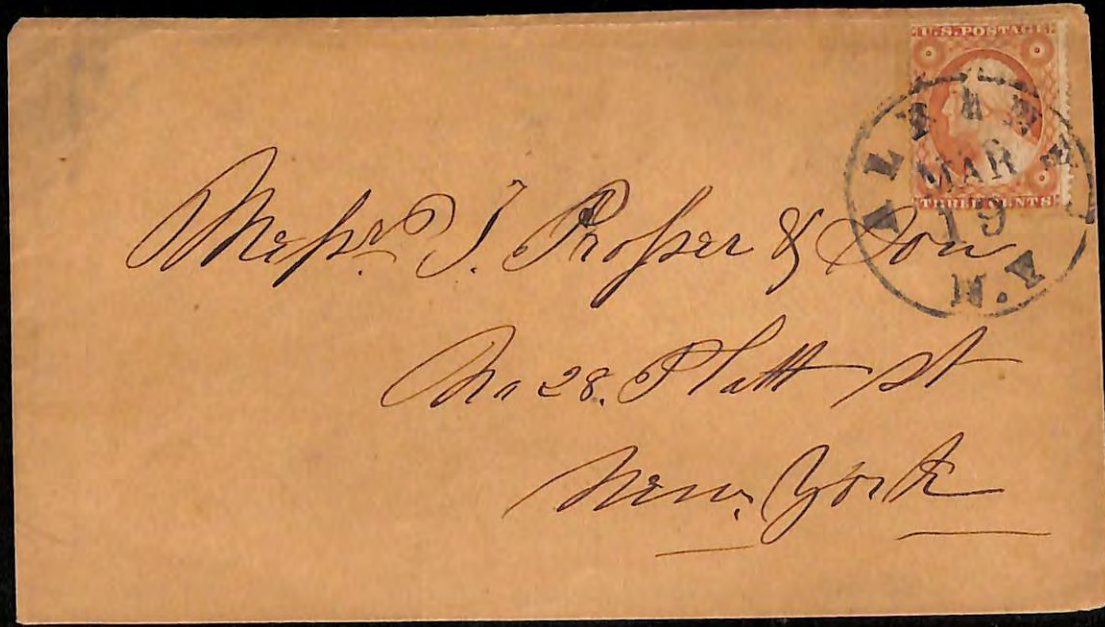 U.S. POSTAGE
THREE CENTS
MAR
19
N.Y
Messrs. T. Prosser & Son
No 28. Platt St
New York